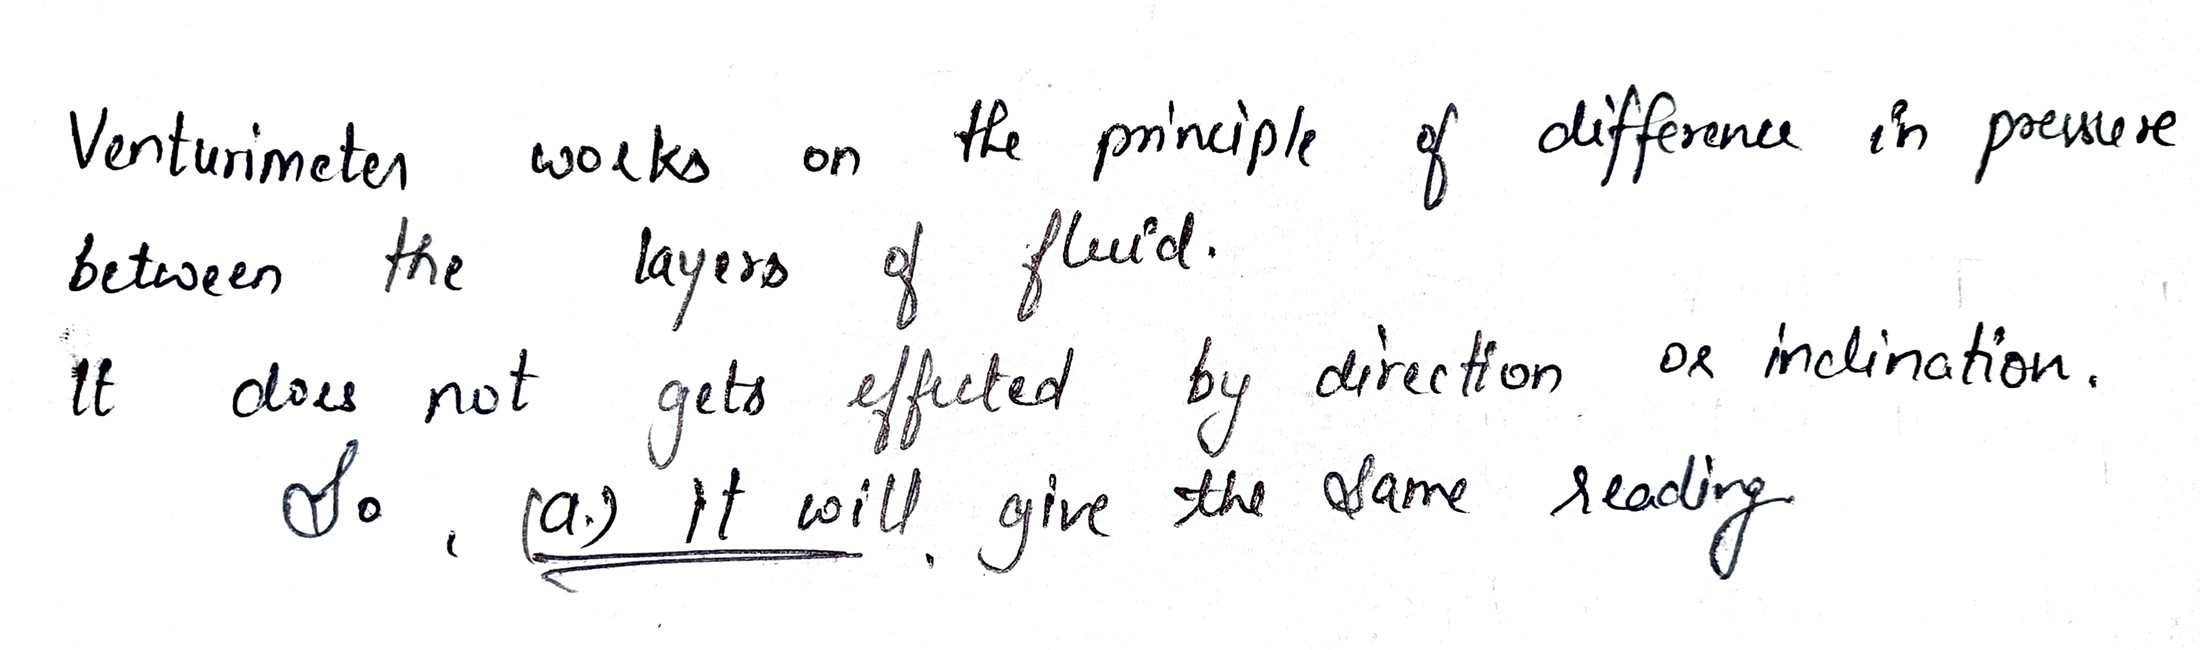 Venturimeter works on the principle of difference in pressure
between the layers of fluid.
It does not gets effected by direction or inclination.
So, (a.) it will, give the same reading